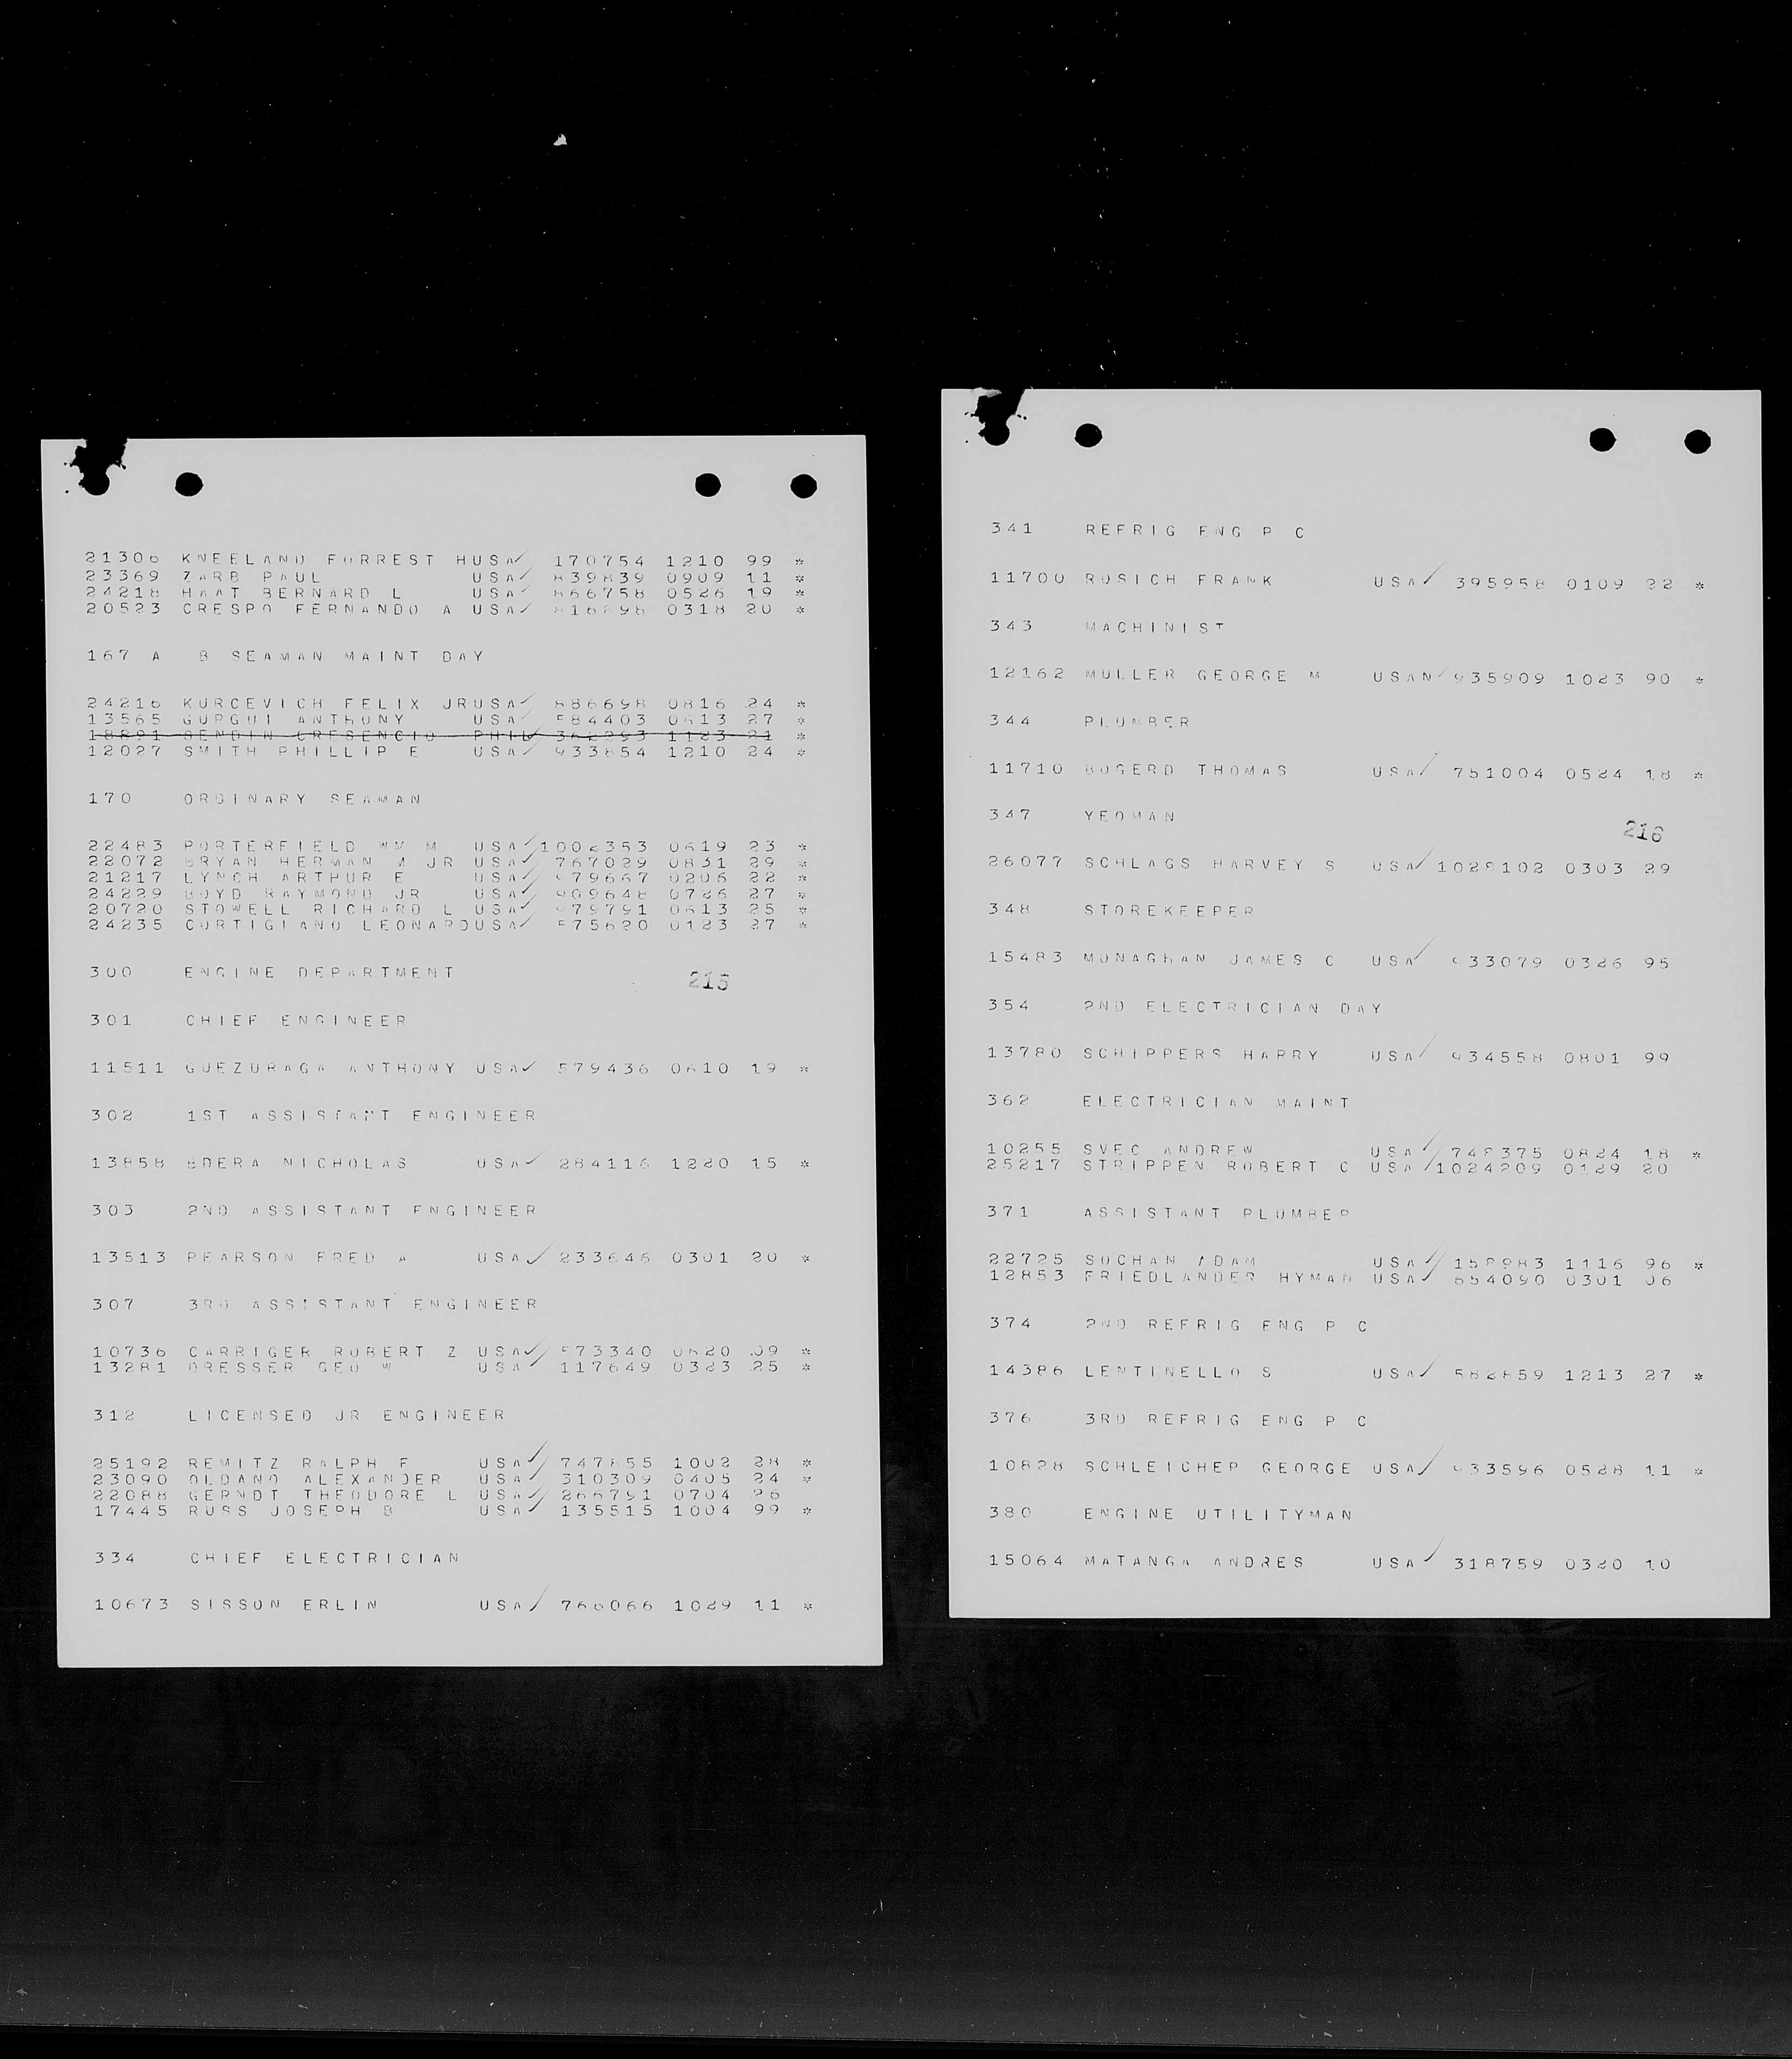 21306 KNEELAND FORREST H USA 170754 1210 99 *
23369 ZARB PAUL USA 839839 0909 11 *
24218 HAAT BERNARD L USA 866758 0526 19 *
20523 CRESPO FERNANDO A USA 0318 20 *
167 A B SEAMAN MAINT DAY
24216 KURCEVICH FELIX JR USA 886698 0816 24 *
13565 ANTHONY USA 584403 0613 27 *
18291 SENDIN CRESENCIO PHIL 362293 1123 21 *
12027 SMITH PHILLIP E USA 933854 1210 24 *
170 ORDINARY SEAMAN
22483 PORTERFIELD WM M USA 1002353 0619 23 *
22072 BRYAN HERMAN M JR USA 767029 0831 29 *
21217 LYNCH ARTHUR E USA 979667 0206 22 *
24229 BOYD RAYMOND JR USA 909648 0726 27 *
20720 STOWELL RICHARD L USA 979791 0613 25 *
24235 CORTIGIANO LEONARD USA 575620 0123 27 *
300 ENGINE DEPARTMENT
215
301 CHIEF ENGINEER
11511 GUEZURAGA ANTHONY USA 579436 0610 19 *
302 1ST ASSISTANT ENGINEER
13858 BDERA NICHOLAS USA 284116 1220 15 *
303 2ND ASSISTANT ENGINEER
13513 PEARSON FRED A USA 233646 0301 20 *
307 3RD ASSISTANT ENGINEER
10736 CARRIGER ROBERT Z USA 573340 0620 09 *
13281 DRESSER GEO W USA 117649 0323 25 *
312 LICENSED JR ENGINEER
25192 REMITZ RALPH F USA 747855 1002 28 *
23090 OLDANO ALEXANDER USA 310309 0405 24 *
22088 GERNDT THEODORE L USA 266791 0704 26
17445 RUSS JOSEPH B USA 135515 1004 99 *
334 CHIEF ELECTRICIAN
10673 SISSON ERLIN USA 766066 1029 11 *
341 REFRIG ENG P C
11700 ROSICH FRANK USA 395958 0109 22 *
343 MACHINIST
12162 MULLER GEORGE M USAN 935909 1023 90 *
344 PLUMBER
11710 BOGERD THOMAS USA 751004 0524 18 *
347 YEOMAN
216
26077 SCHLAGS HARVEY S USA 1028102 0303 29
348 STOREKEEPER
15483 MONAGHAN JAMES C USA 933079 0326 95
354 2ND ELECTRICIAN DAY
13780 SCHIPPERS HARRY USA 934558 0801 99
362 ELECTRICIAN MAINT
10255 SVEC ANDREW USA 748375 0824 18 *
25217 STRIPPEN ROBERT C USA 1024209 0129 20
371 ASSISTANT PLUMBER
22725 SOCHAN ADAM USA 1116 96 *
12853 FRIEDLANDER HYMAN USA 654090 0301 06
374 2ND REFRIG ENG P C
14386 LENTINELLO S USA 582859 1213 27 *
376 3RD REFRIG ENG P C
10828 SCHLEICHER GEORGE USA 933596 0528 11 *
380 ENGINE UTILITYMAN
15064 MATANGA ANDRES USA 318759 0320 10